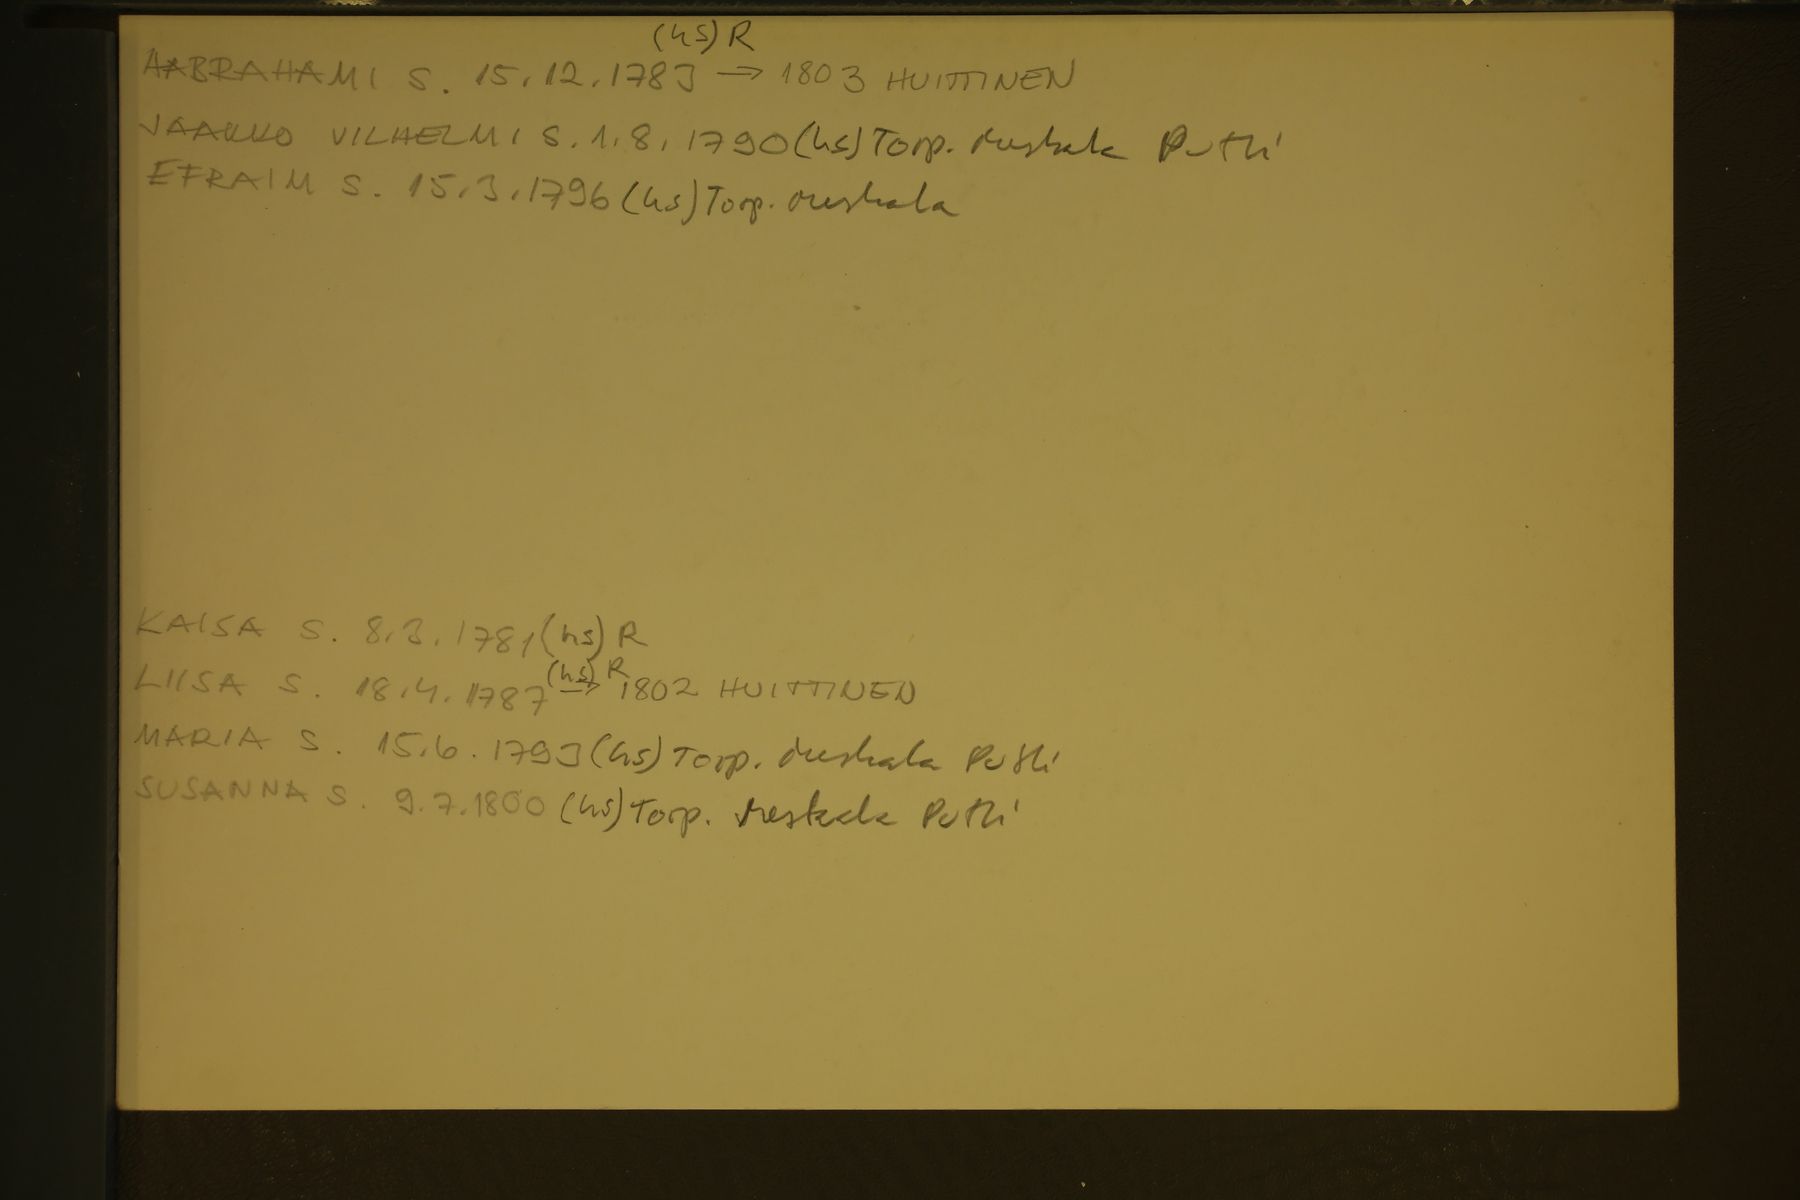 (hs) R
AABRAHAMI S. 15.12.1783 → 1803 HUITTINEN
JAAKKO VILHELMI S. 1.8.1790 (hs) Torp. Meskala Putli
EFRAIM S. 15.3.1796 (hs) Torp. Meskala
KAISA S. 8.3.1781 (hs) R
(hs) R
LIISA S. 18.4.1787 → 1802 HUITTINEN
MARIA S. 15.6.1793 (hs) Torp. Meskala Putli
SUSANNA S. 9.7.1800 (hs) Torp. Meskala Putli